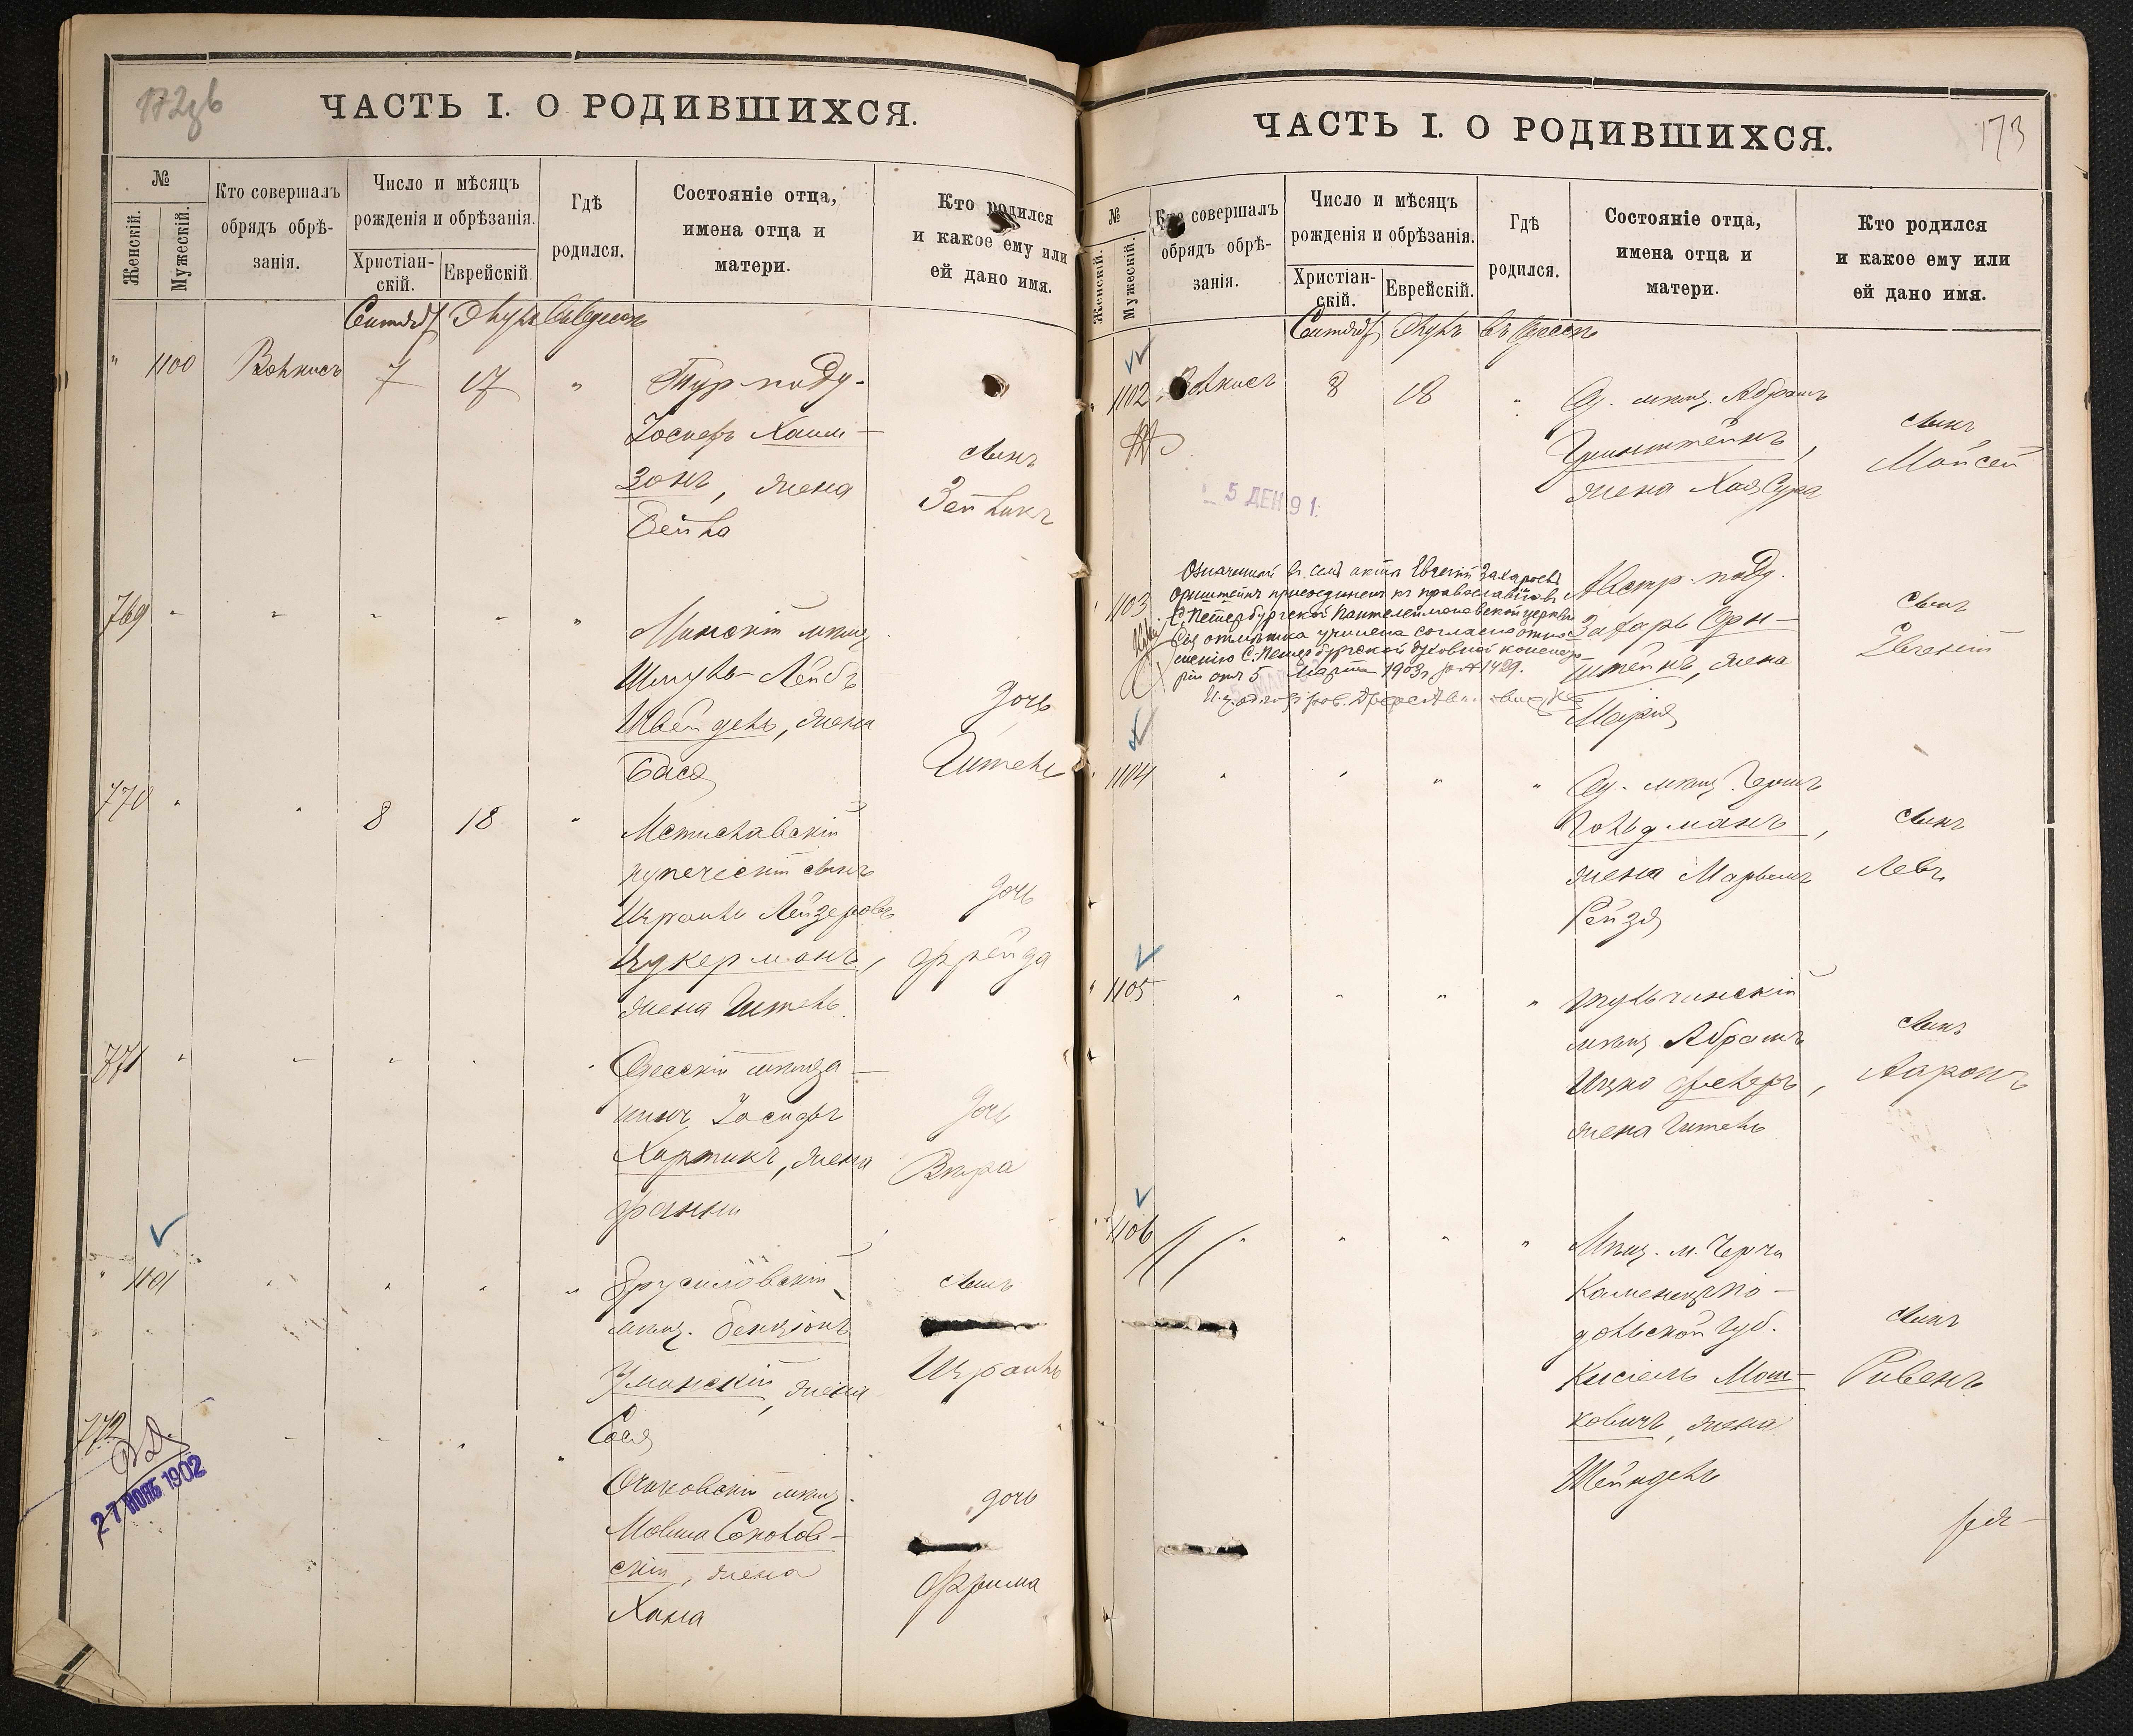 ЧАСТЬ I. О РОДИВШИХСЯ.
№
Женскій.
Мужескій.
Кто совершалъ
обрядъ обрѣ-
занія.
Число и мѣсяцъ
рожденія и обрѣзанія.
Христіан-
скій.
Еврейскій.
Гдѣ
родился.
Состояніе отца,
имена отца и
матери.
Кто родился
и какое ему или
ей дано имя.
" 1100
7 17 "
Іосифъ Хаим-
зонъ, жена
Бейла
сынъ
769 " " " "
Минскій мѣщ
Шмуль-Лейбъ
жена
Бася
дочь
Гитель
770 " " 8 18 "
Мстиславскій
купеческій сынъ
Израиль Лейзеровъ
Цукерманъ,
жена Гитель
дочь
Фрейда
771 " " " " "
Одесскій мѣща-
нинъ Іосифъ
Хартикъ, жена
Фанни
дочь
Вѣра
" 1101 " " " "
Брусиловскій
мѣщ. Бенціонъ
Уманскій, жена
Сося
сынъ
Израиль
772 " " " "
27 НОЯБ 1902
Очаковскій мѣщ.
Мовша Соколов-
скій, жена
Хана
дочь
Фрима
173
ЧАСТЬ I. О РОДИВШИХСЯ.
№
Женскій.
Мужескій.
Кто совершалъ
обрядъ обрѣ-
занія.
Число и мѣсяцъ
рожденія и обрѣзанія.
Христіан-
скій.
Еврейскій.
Гдѣ
родился.
Состояніе отца,
имена отца и
матери.
Кто родился
и какое ему или
ей дано имя.
въ Одессѣ
" 1102 8 18 "
Од. мѣщ. Абрамъ
Гринштейнъ,
жена Хая Сура
сынъ
Мойсей
5 ДЕК 91
" 1103
Означенный въ семъ актѣ Евгеній Захарьевъ
Орнштейнъ присоединенъ къ православію въ
С. Петербургской Пантелеймоновской церкви
Сія отмѣтка учинена согласно отно-
шенію С.-Петербургской духовной консисто-
ріи отъ 5 Марта 1903 г. за № 1429.
Австр. подд.
Захарь Орн-
штейнъ, жена
Марія
сынъ
Евгеній
" 1104 " " " "
Од. мѣщ. Гершъ
Гольдманъ,
жена
Рейзя
сынъ
Левъ
" 1105 " " " "
Тульчинскій
мѣщ. Абрамъ
Ицко Фельеръ,
жена Гитель
сынъ
Ааронъ
" 1106 " " " "
Мѣщ. м.
Каменецъ по-
дольской губ.
Кисіель Мош-
ковичъ, жена
Шейндель
сынъ
Рувенъ